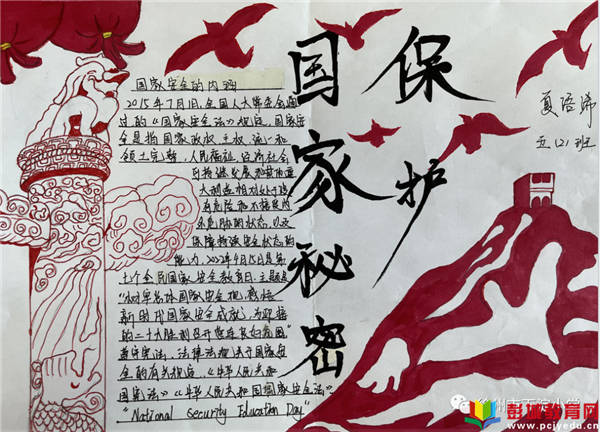 保护
国家秘密
夏语浠
五(2)班
国家安全的内涵
2015年7月1日,全国人大常委会通
过的《国家安全法》规定,国家安
全是指国家政权、主权、统一和
领土完整、人民福祉、经济社会
可持续发展和其他重
大利益相对处于没
有危险和不受内
外威胁的状态,以及
保障持续安全状态的
能力。2022年4月15日是第
七个全民国家安全教育日,主题是
“树牢总体国家安全观,感悟
新时代国家安全成就,为迎接
党的二十大胜利召开营造良好氛围”
遵守宪法、法律法规关于国家安
全的有关规定,《中华人民共和
国宪法》《中华人民共和国国家安全法》
“National Security Education Day”
徐州市下淀小学
彭城教育网
www.pcjyedu.cn